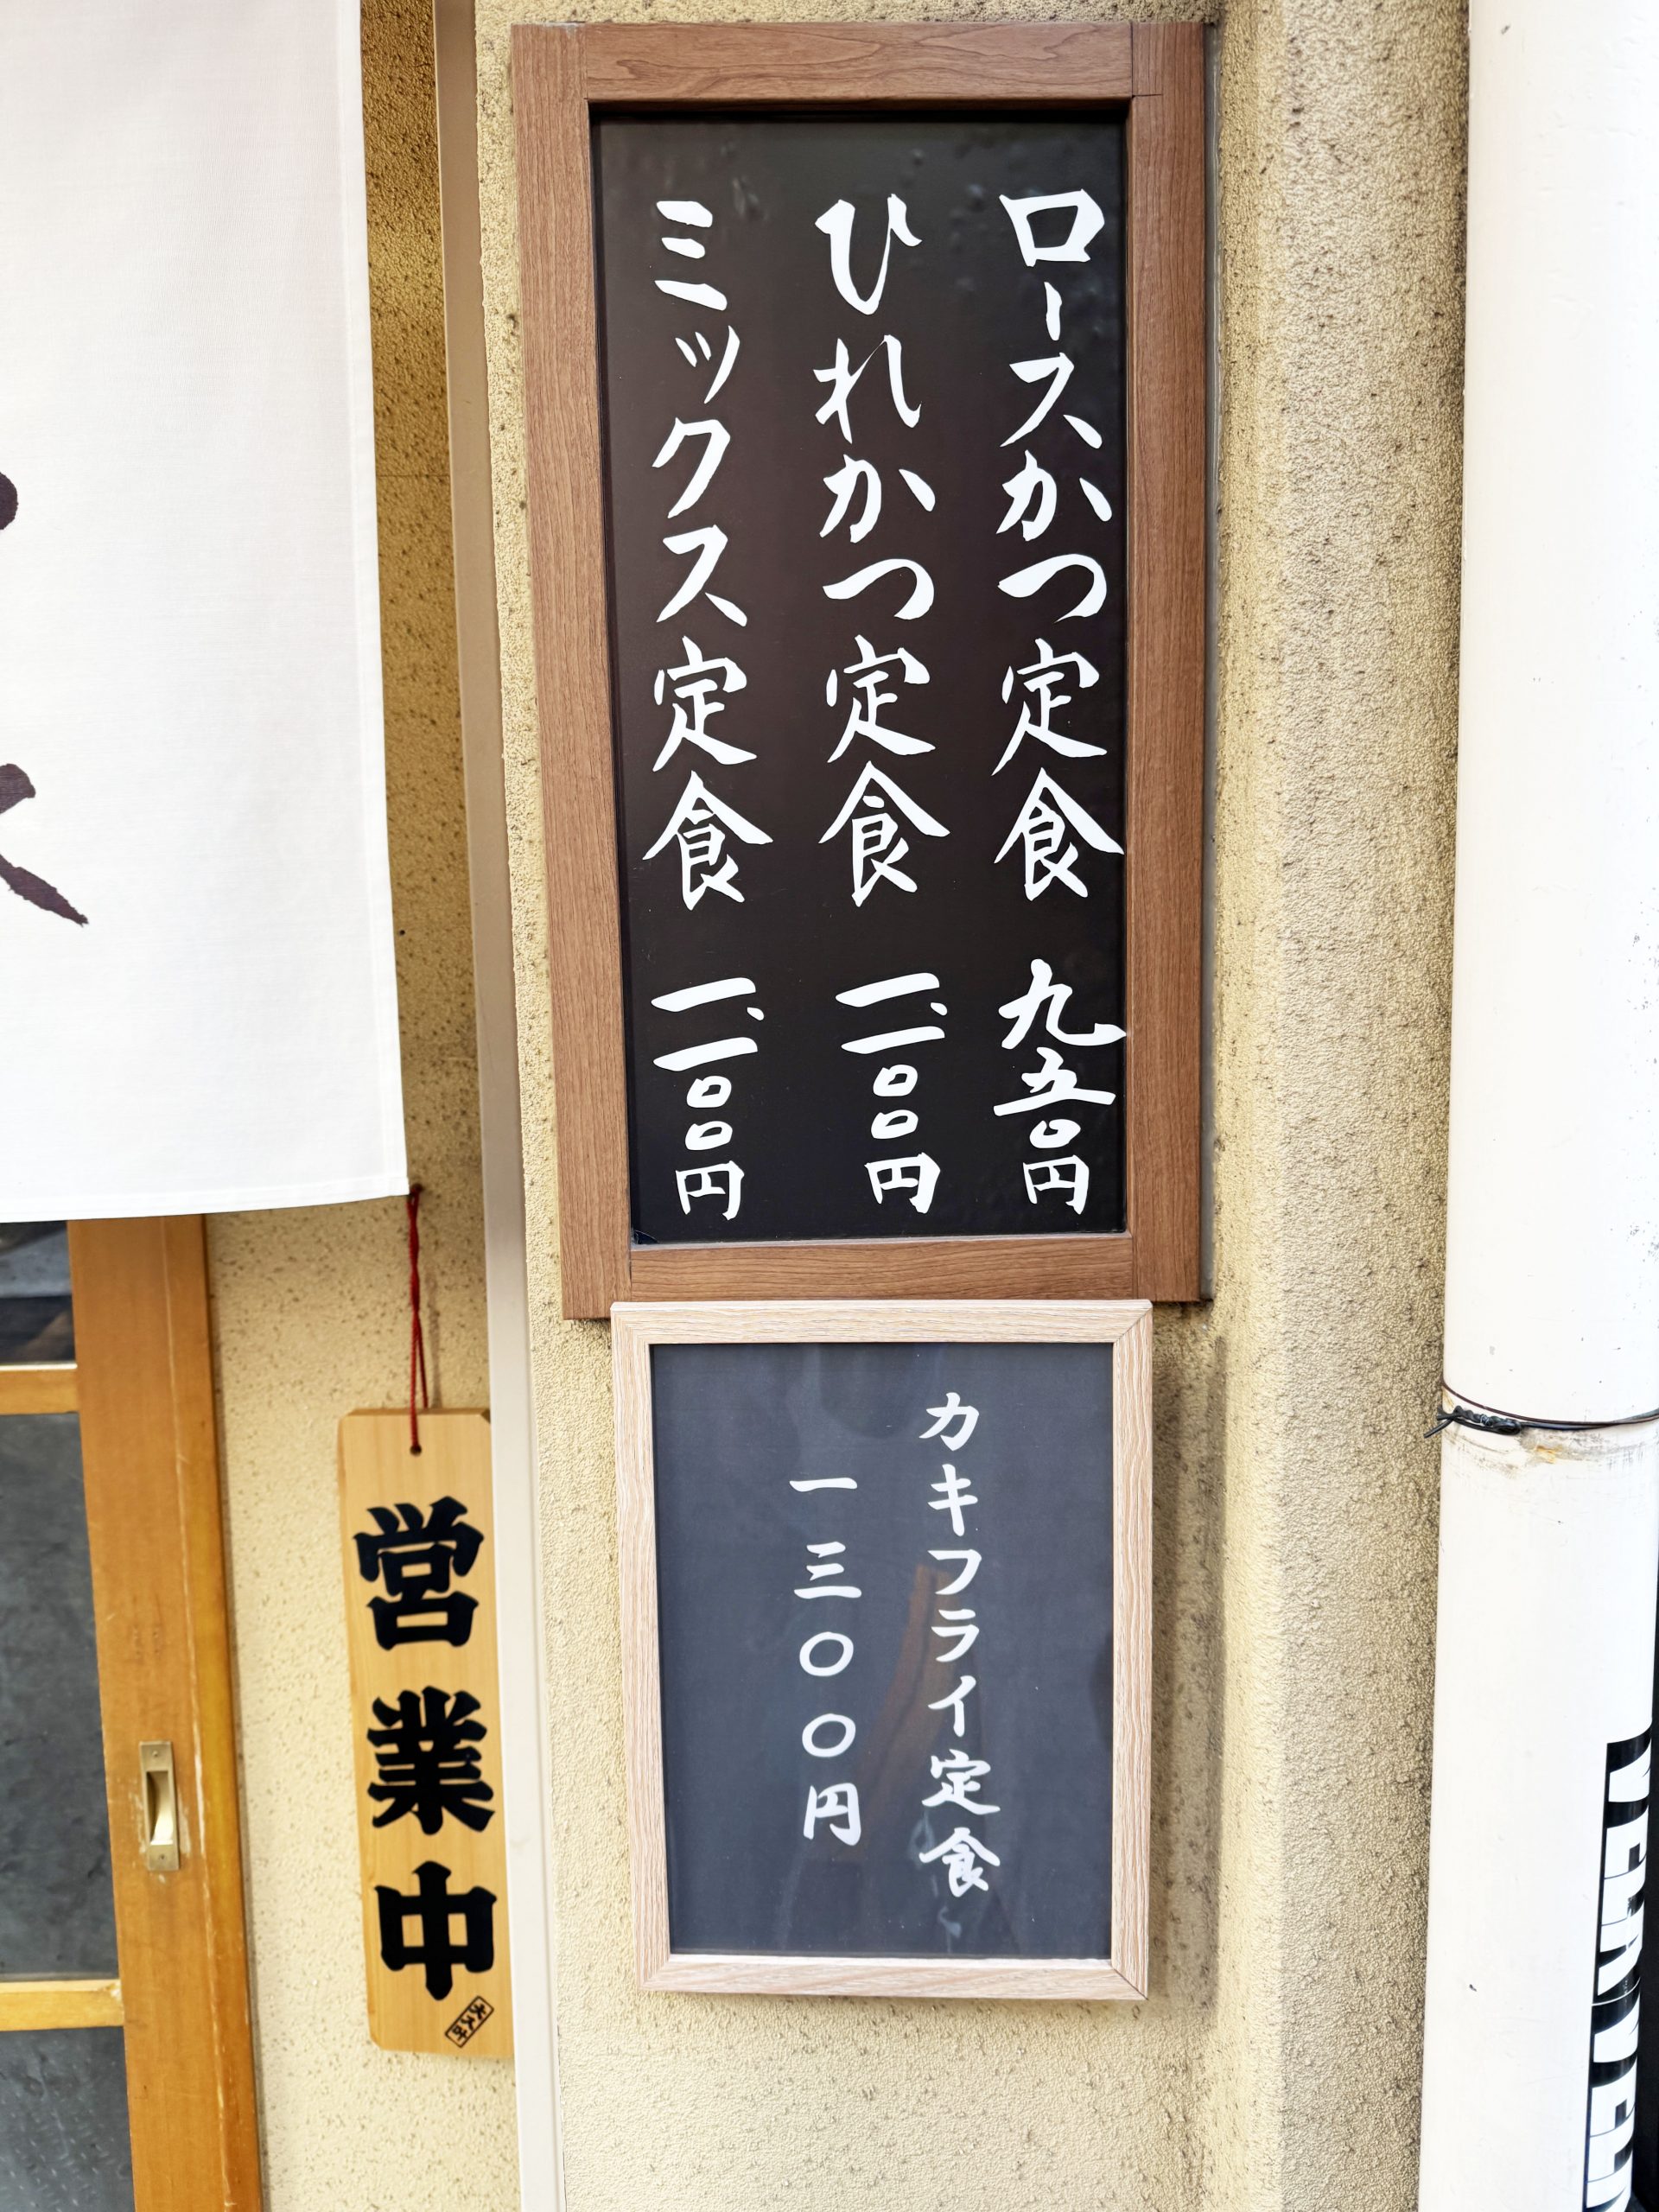 ロースかつ定食 九五〇円
ひれかつ定食 一、一〇〇円
ミックス定食 一、一〇〇円
カキフライ定食
一三〇〇円
営業中